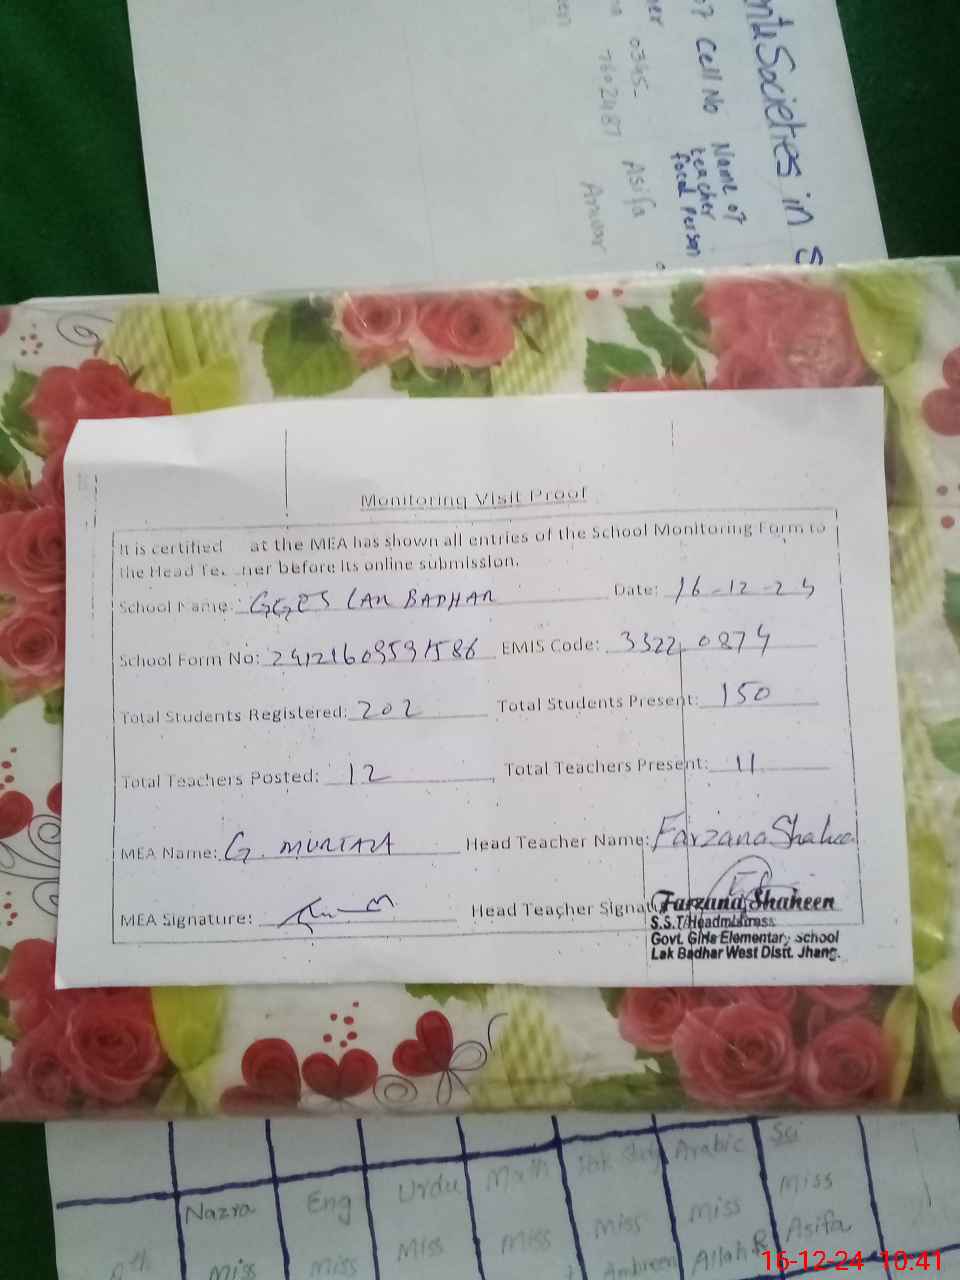 nts Societies in S
Cell No
Name of
teacher
focal Person
0345-
7602487
Asifa
Anwar
Monitoring Visit Proof
It is certified at the MEA has shown all entries of the School Monitoring Form to
the Head Te. ner before its online submission.
School Name: GGES LAK BADHAR Date: 16-12-24
School Form No: 24121609591586 EMIS Code: 33220874
Total Students Registered: 202 Total Students Present: 150
Total Teachers Posted: 12 Total Teachers Present: 11
MEA Name: G. MURTAZA Head Teacher Name: Farzana Shahee
MEA Signature: Head Teacher Signat
Farzana Shaheen
S.S.T/Headmistress
Govt. Girls Elementary School
Lak Badhar West Distt. Jhang.
Nazra Eng Urdu Math Pak Study Arabic Sci
Miss Miss Miss Miss Miss Miss Miss
Ambreen Allah R Asifa
16-12-24 10:41